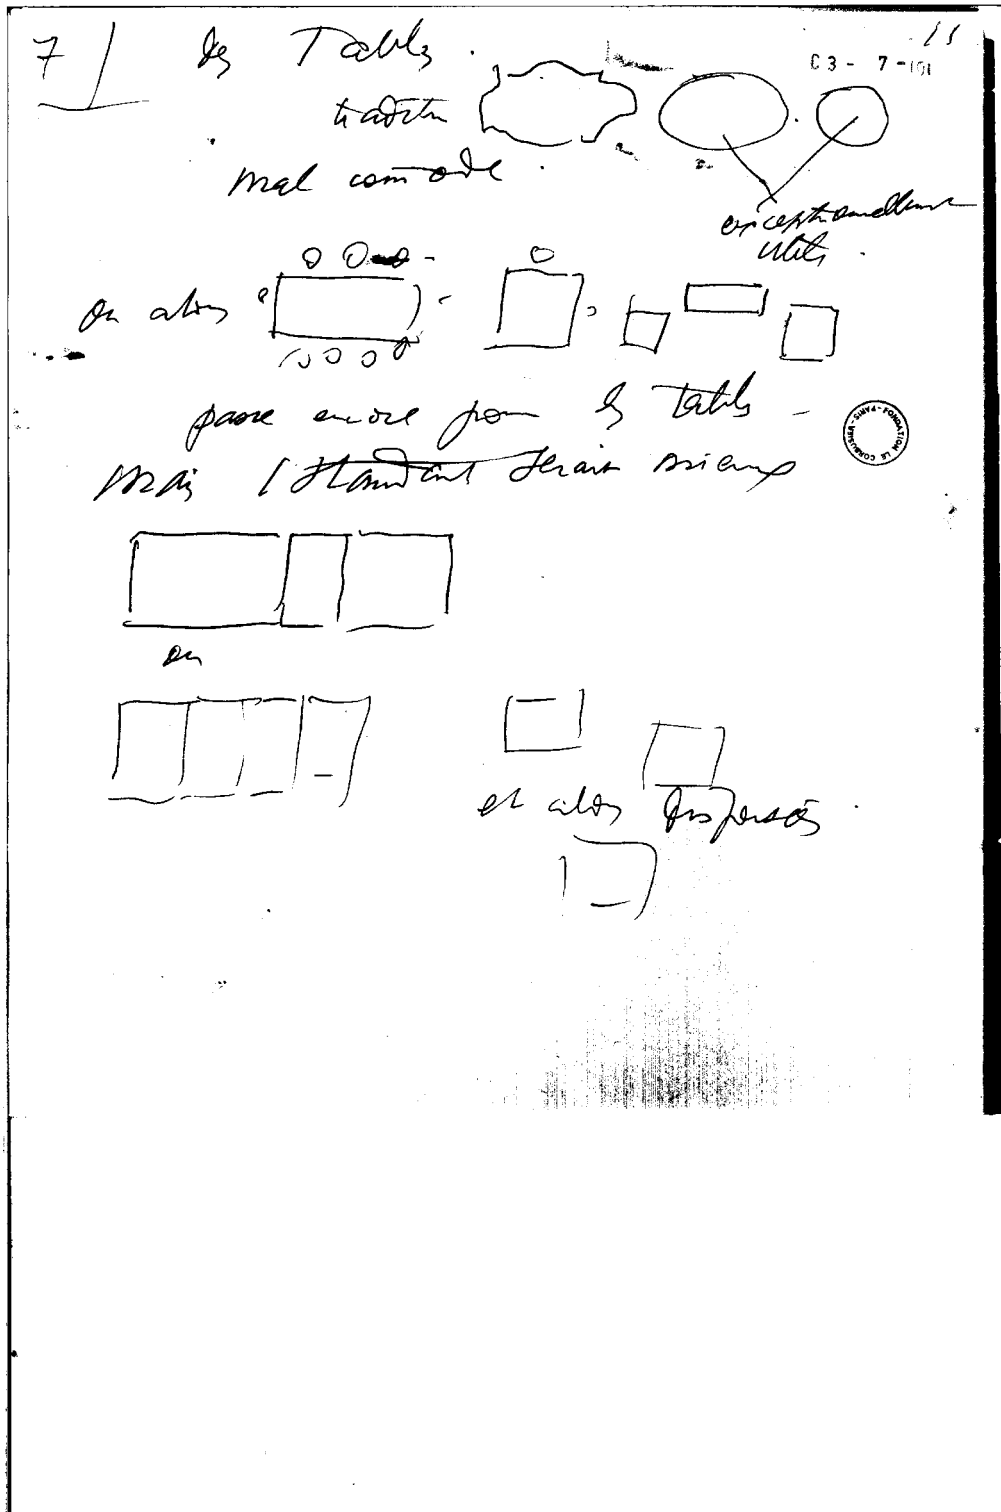 7 des Tables.
11
C3-7-101
tradition
mal commode.
exceptionnellement
utiles.
ou alors
passe encore pour les tables -
FONDATION LE CORBUSIER - PARIS -
mais l standard serait mieux
ou
et alors dispersées.